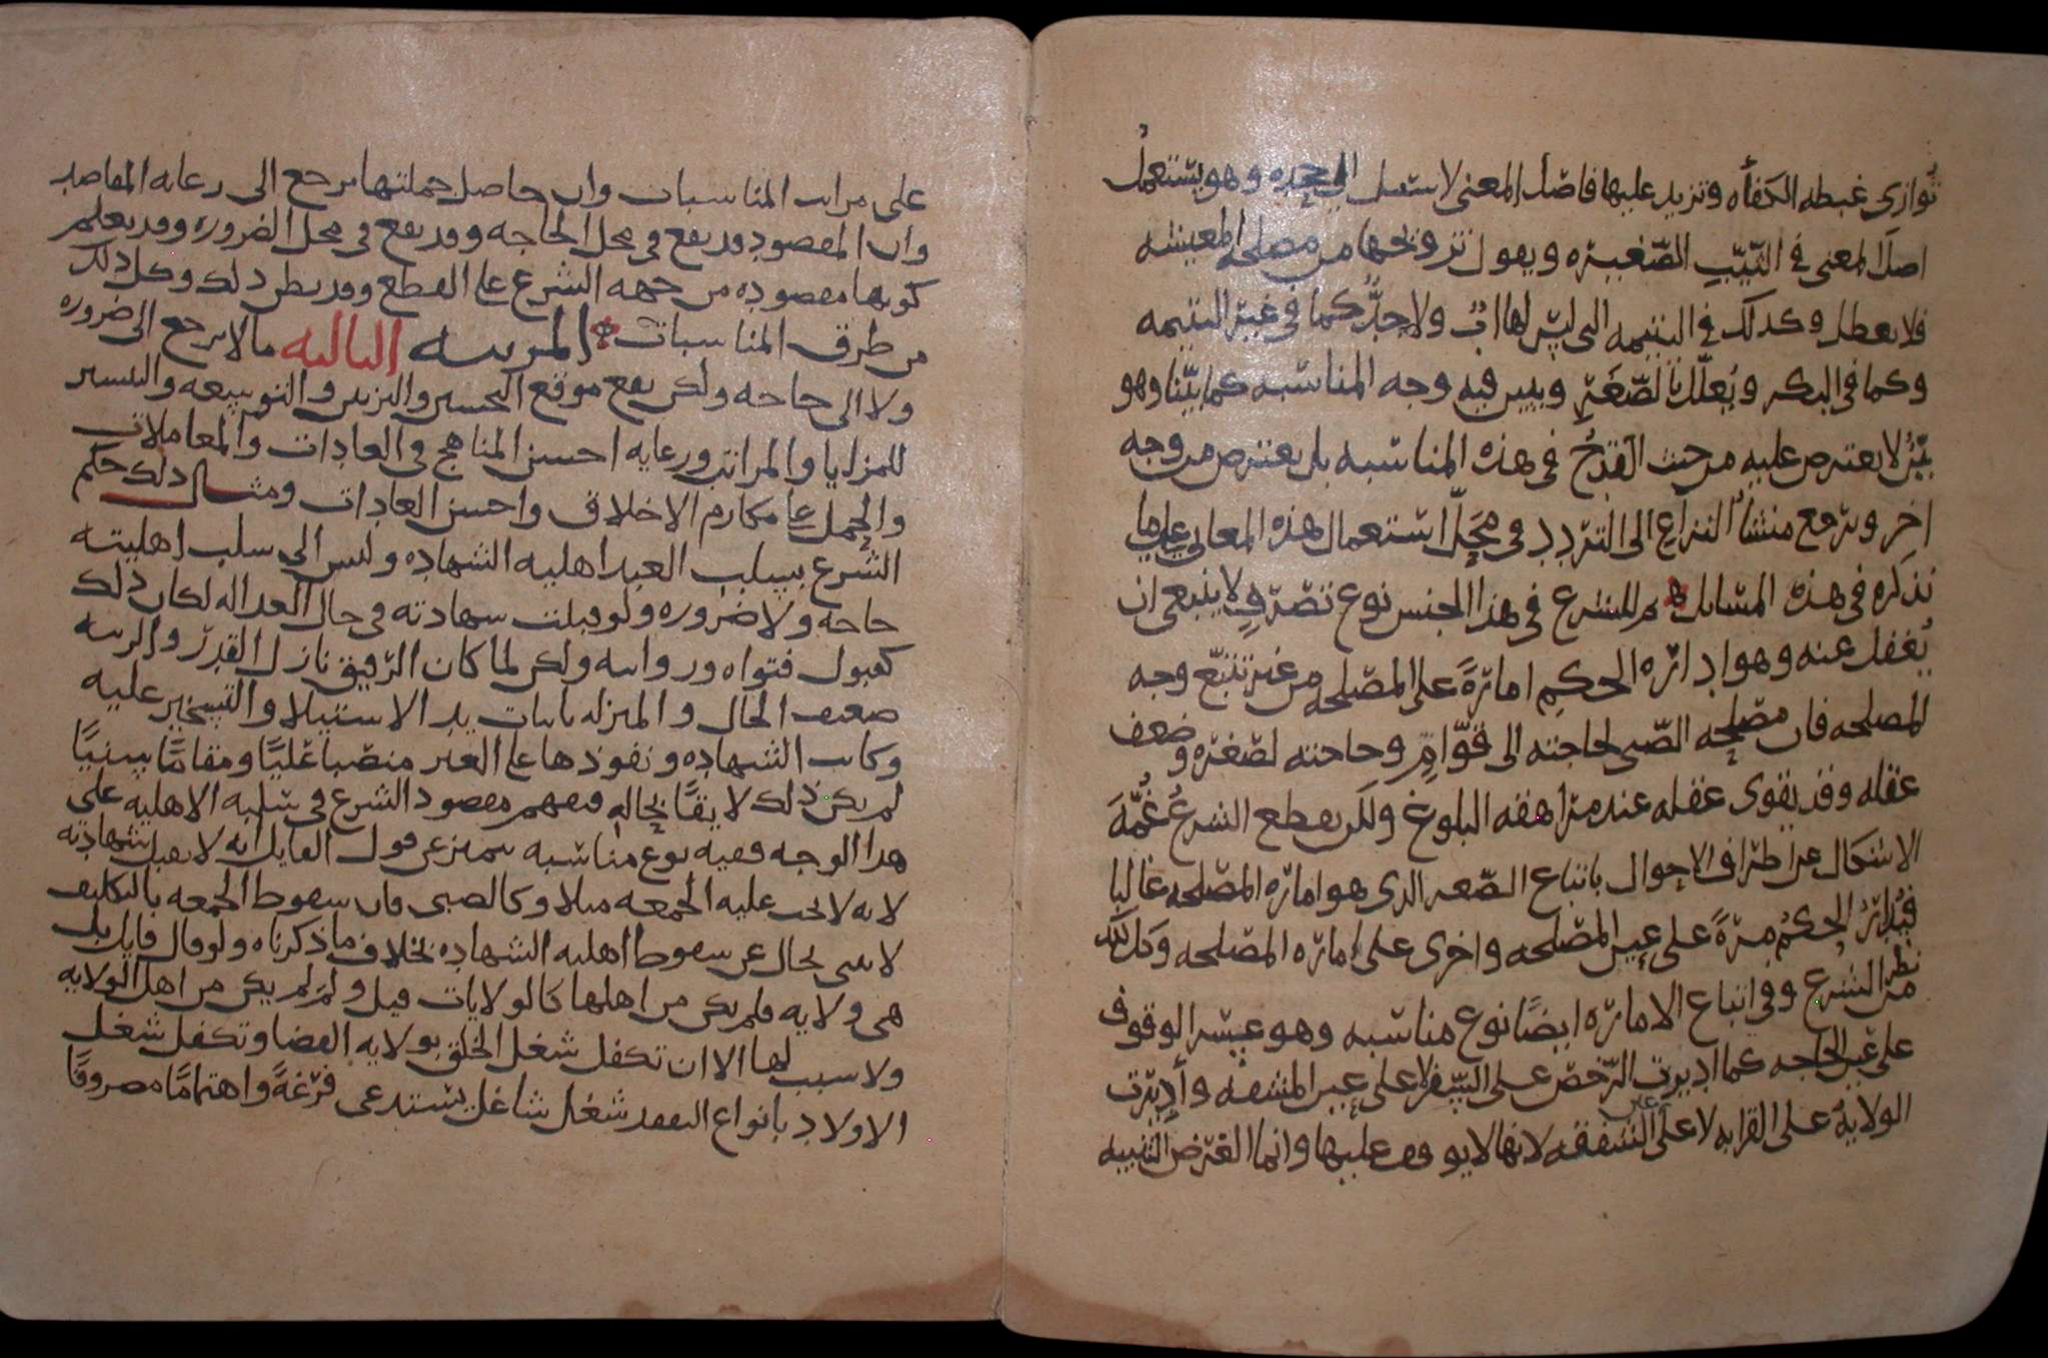 توازى غبطه الكفأه وتزيد عليها فاصل المعنى لاسبيل الى جحده وهو يستعمل
اصل المعنى فى الثيّب الصّغيره ويقول تزويجها من مصلحه المعيشه
فلا يعطل وكذلك فى اليتيمه التى ليس لها ابٌ ولا جدٌّ كما فى غير اليتيمه
وكما فى البكر ويُعلّل بالصّغَر ويبين فيه وجه المناسبه كما بيّنا وهو
بَيّنٌ لا يعترض عليه من حيث القدحُ فى هذه المناسبه بل يعترض من وجه
اخر ويرجع منشأ النزاع الى التردد فى محلّ استعمال هذه المعانى على ما
نذكره فى هذه المسائل ثم للشرع فى هذا الجنس نوع تصرّفٍ لا ينبغى ان
يُغفل عنه وهو ادارة الحكم امارةً على المصلحه من غير تتبّع وجه
المصلحه فان مصلحه الصّبى لحاجته الى قوّامٍ وحاجته لصغره وضعف
عقله وقد يقوى عقله عند مراهقه البلوغ ولكن يقطع الشرعُ غُمَّةَ
الاشكال عن اطراف الاحوال باتباع الصّغر الذى هو اماره المصلحه غالبا
فيُدارُ الحكمُ مرةً على عين المصلحه واخرى على اماره المصلحه وكل ذلك
نظر من الشرع وفى اتباع الاماره ايضًا نوع مناسبه وهو عسر الوقوف
على عين الحاجه كما اديرت الرّخص على السّفر لا على عين المشقه وأديرت
الولايهُ على القرابه لا على عين الشفقه لانها لا يوقف عليها وانما الغرض التنبيه
على مراتب المناسبات وان حاصل جملتها يرجع الى رعايه المقاصد
وان المقصود قد يقع فى محل الحاجه وقد يقع فى محل الضروره وقد يعلم
كونها مقصوده من جهه الشرع على القطع وقد يظن ذلك وكل ذلك
من طرق المناسبات المرتبه الثالثه ما لا يرجع الى ضروره
ولا الى حاجه ولكن يقع موقع التحسين والتزيين والتوسعه والتيسير
للمزايا والمراتب ورعايه احسن المناهج فى العادات والمعاملات
والحمل على مكارم الاخلاق واحسن العادات ومثال ذلك حكم
الشرع بسلب العبد اهليه الشهاده وليس الى سلب اهليته
حاجه ولا ضروره ولو قبلت شهادته فى حال العداله لكان ذلك
كقبول فتواه وروايته ولكن لما كان الرّقيق نازل القدر والرتبه
ضعيف الحال والمنزله باثبات يد الاستيلا والتسخير عليه
وكانت الشهاده ونفوذها على الغير منصبا عَليًّا ومقامًا سنيًّا
لم يكن ذلك لايقًا بحاله ففهم مقصود الشرع فى سلبه الاهليه على
هذا الوجه ففيه نوع مناسبه يتميز عن قول القايل انه لا يقبل شهادته
لانه لا تجب عليه الجمعه مثلا وكالصبى فان سقوط الجمعه بالتكليف
لا ينبى بحال عن سقوط اهليه الشهاده بخلاف ما ذكرناه ولو قال قايل بل
هى ولايه فلم يكن من اهلها كالولايات قيل ولمَ لم يكن من اهل الولايه
ولا سبب لها الا ان تكفل شغل الخلق بولايه القضا وتكفل شغل
الاولاد بانواع التفقد شغل شاغل يستدعى فرغةً واهتمامًا مصروفًا